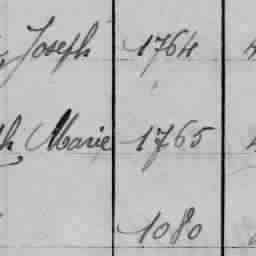 Joseph 1764
Marie 1765
1080